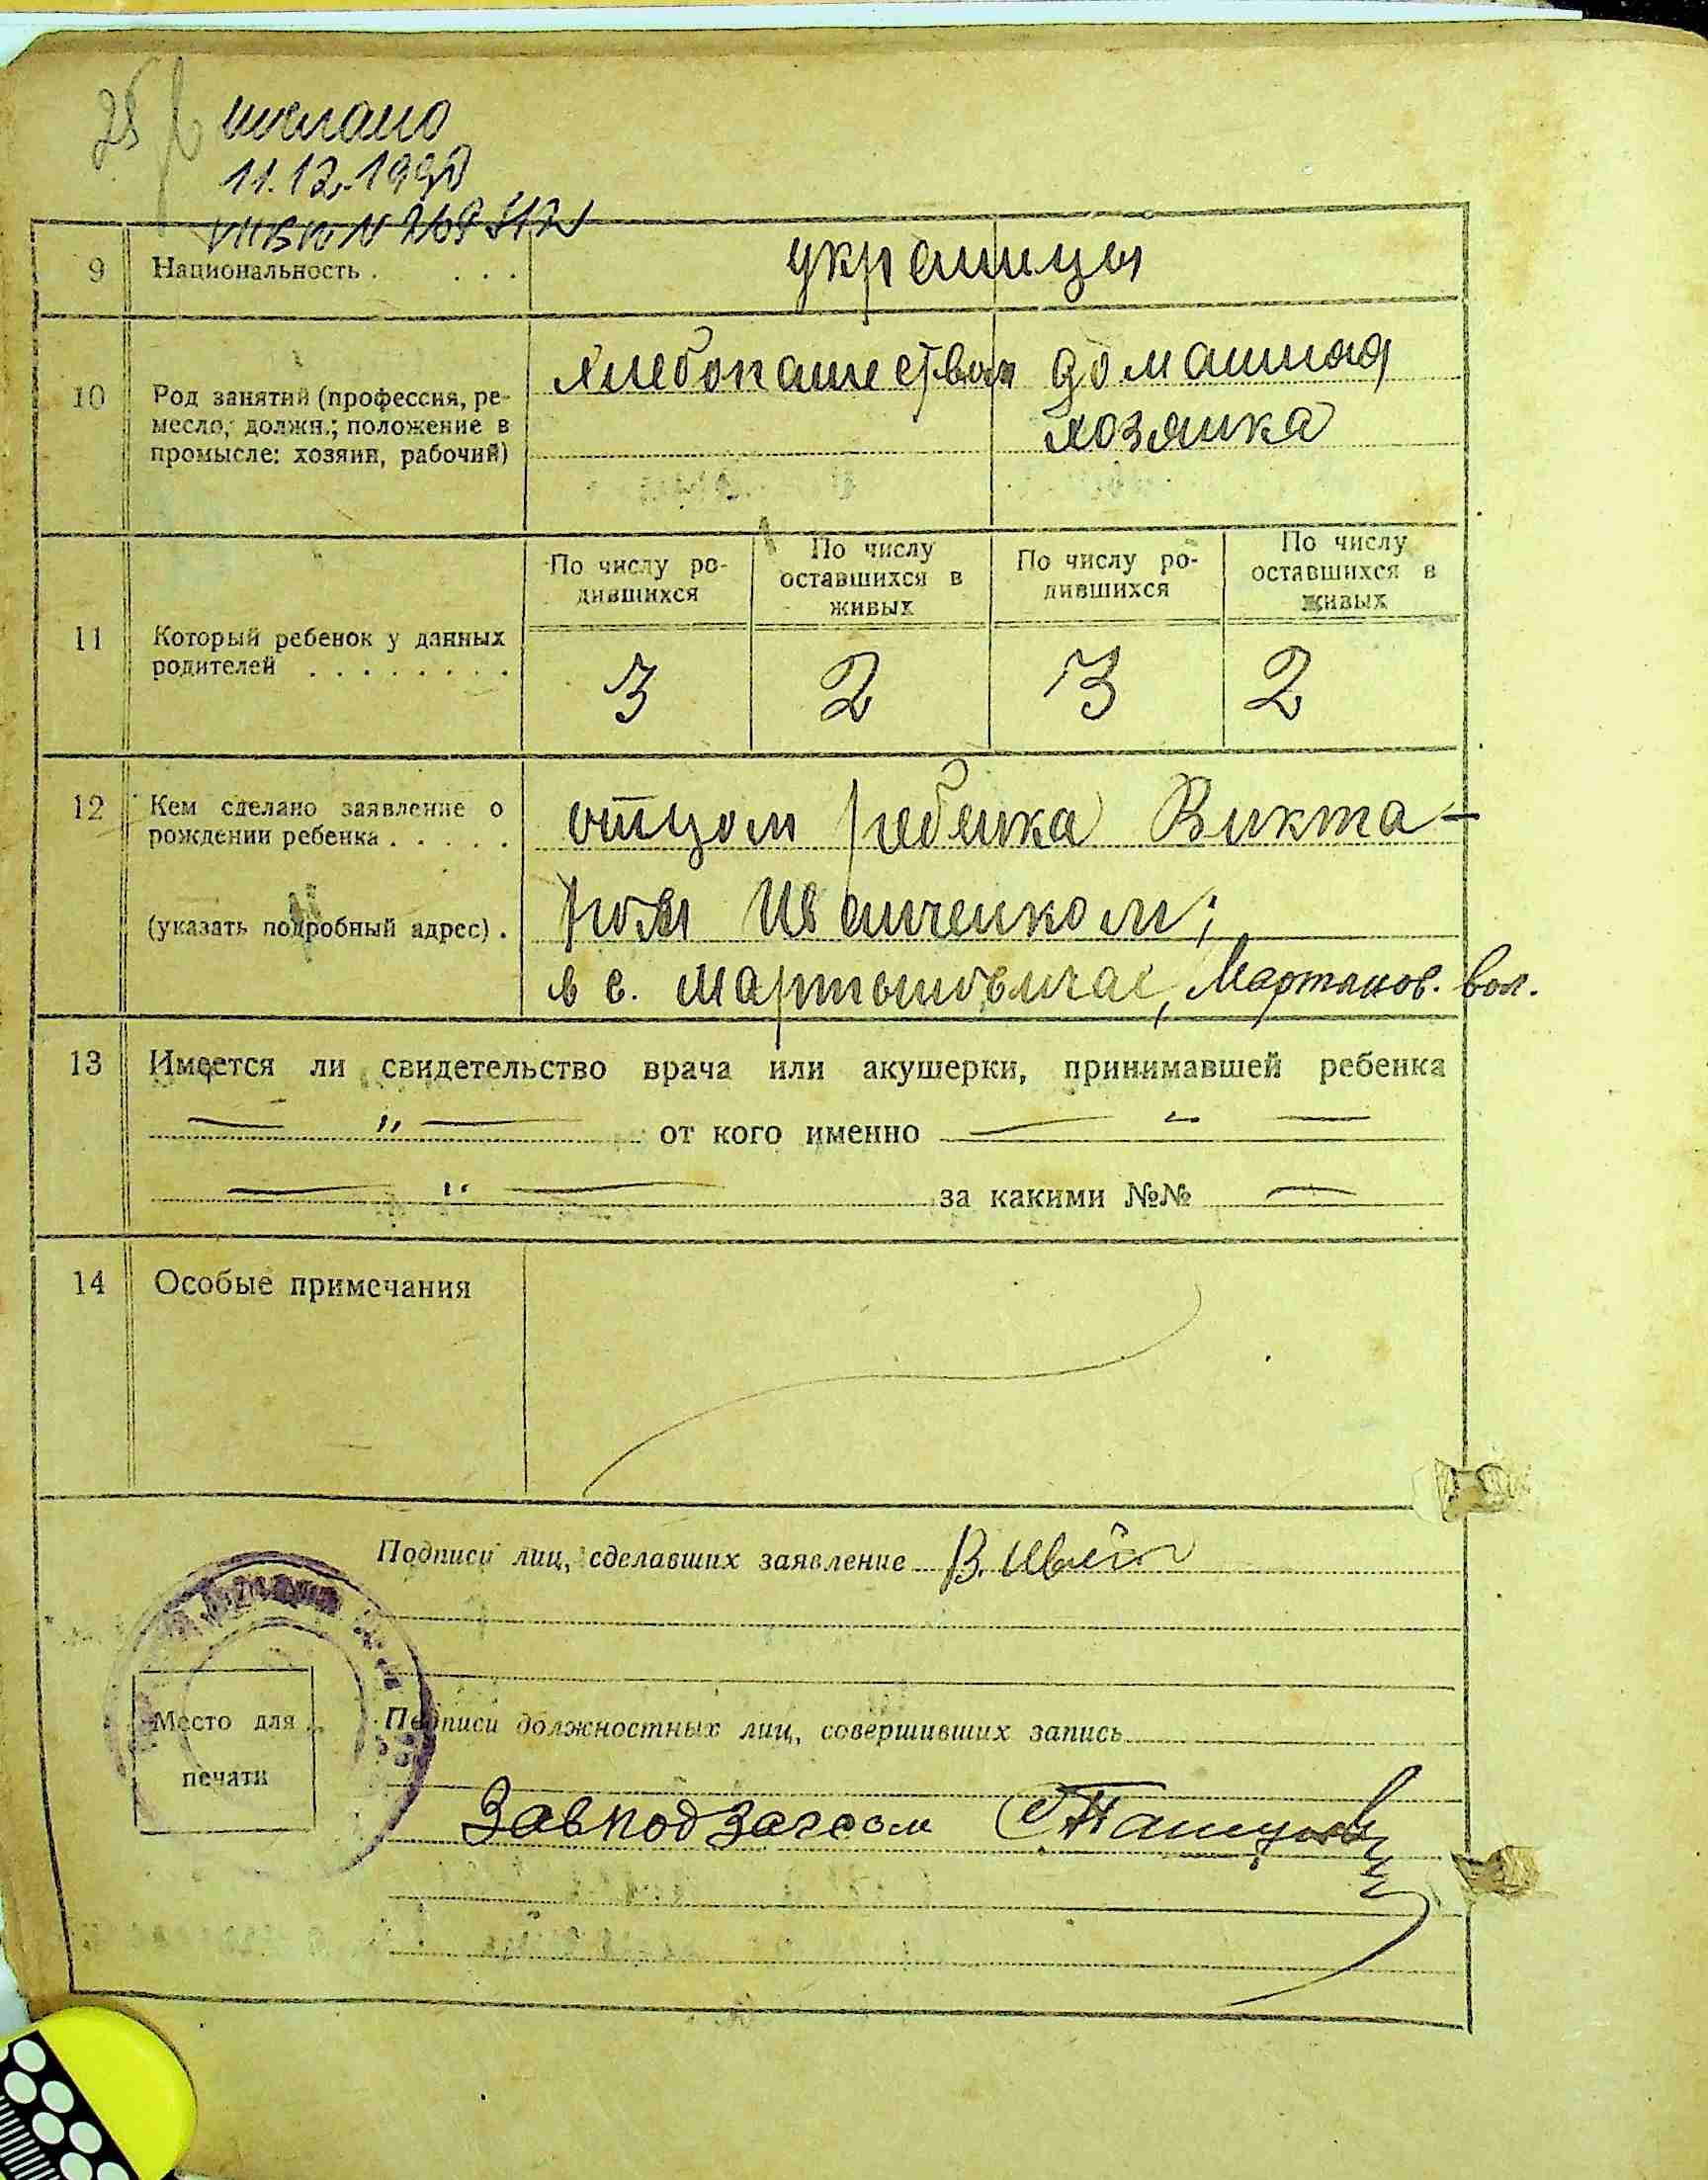 28
11.12.1990
9 Национальность . . . . украинцы
10 Род занятий (профессия, ре-
месло, должн.; положение в
промысле: хозяин, рабочий)
хлебопашеством домашняя
хозяйка
По числу ро-
дившихся
По числу
оставшихся в
живых
По числу ро-
дившихся
По числу
оставшихся в
живых
11 Который ребенок у данных
родителей . . . . . . . .
3 2 3 2
12 Кем сделано заявление о
рождении ребенка . . . . .
(указать подробный адрес) .
отцом ребенка Викта-
ром Иванченком;
в с. Мартыновичах, Мартынов. вол.
13 Имеется ли свидетельство врача или акушерки, принимавшей ребенка
— " — от кого именно — " —
— " — за какими №№ —
14 Особые примечания
Подписи лиц, сделавших заявление В.
Место для
печати
Подписи должностных лиц, совершивших запись
Завподзагсом